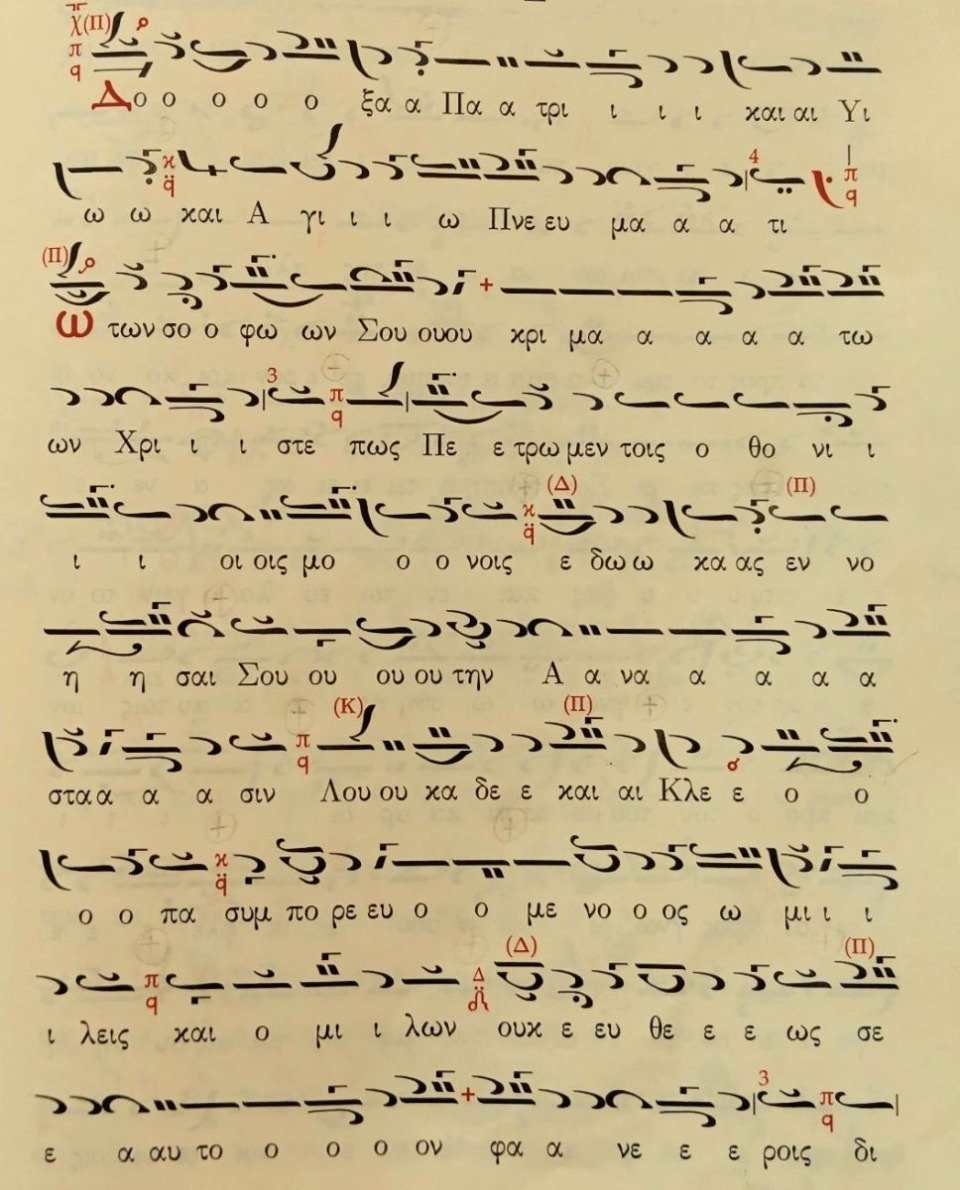 Δο ο ο ο ο ξα α Πα α τρι ι ι ι και αι Υι
ω ω και Α γι ι ι ω Πνε ευ μα α α τι
Ω των σο ο φω ων Σου ου ου κρι μα α α α α τω
ων Χρι ι ι στε πως Πε ε τρω μεν τοις ο θο νι ι
ι ι οι οις μο ο ο νοις ε δω ω κα ας εν νο
η η σαι Σου ου ου ου την Α α να α α α α
στα α α α σιν Λου ου κα δε ε και αι Κλε ε ο ο
ο ο πα συμ πο ρε ευ ο ο με νο ο ος ω μι ι ι
ι λεις και ο μι ι λων ουκ ε ευ θε ε ε ως σε
ε α αυ το ο ο ο ον φα α νε ε ε ροις δι